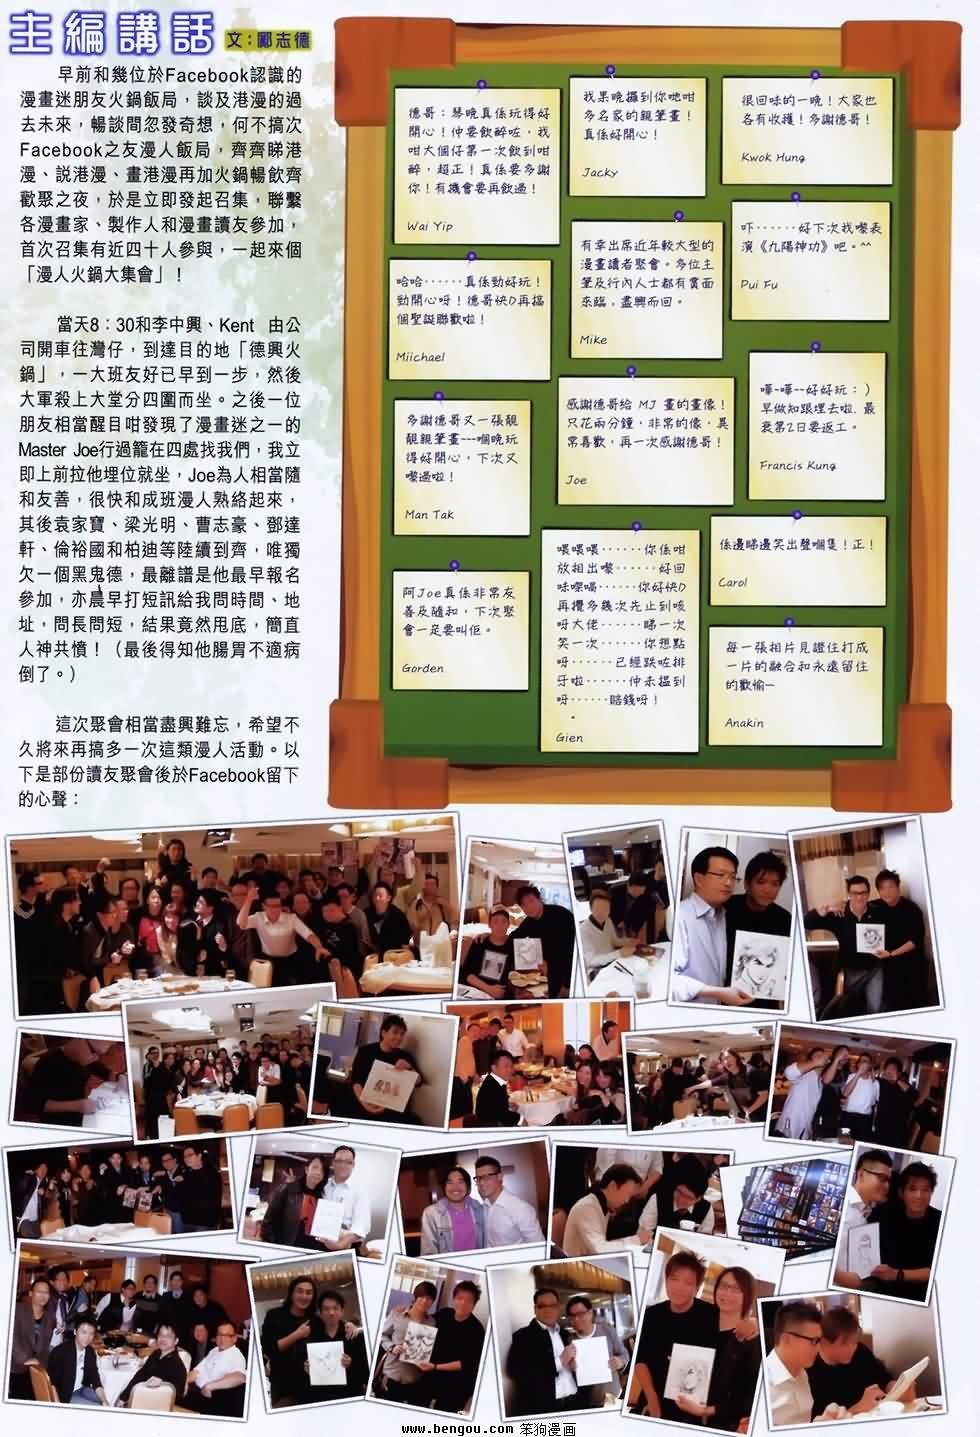 主編講話
文：鄺志德
早前和幾位於Facebook認識的
漫畫迷朋友火鍋飯局，談及港漫的過
去未來，暢談間忽發奇想，何不搞次
Facebook之友漫人飯局，齊齊睇港
漫、説港漫、畫港漫再加火鍋暢飲齊
歡聚之夜，於是立即發起召集，聯繫
各漫畫家、製作人和漫畫讀友參加，
首次召集有近四十人參與，一起來個
「漫人火鍋大集會」！
當天8：30和李中興、Kent 由公
司開車往灣仔，到達目的地「德興火
鍋」，一大班友好已早到一步，然後
大軍殺上大堂分四圍而坐。之後一位
朋友相當醒目咁發現了漫畫迷之一的
Master Joe行過籠在四處找我們，我立
即上前拉他埋位就坐，Joe為人相當隨
和友善，很快和成班漫人熟絡起來，
其後袁家寶、梁光明、曹志豪、鄧達
軒、倫裕國和柏迪等陸續到齊，唯獨
欠一個黑鬼德，最離譜是他最早報名
參加，亦晨早打短訊給我問時間、地
址，問長問短，結果竟然甩底，簡直
人神共憤！（最後得知他腸胃不適病
倒了。）
這次聚會相當盡興難忘，希望不
久將來再搞多一次這類漫人活動。以
下是部份讀友聚會後於Facebook留下
的心聲：
德哥：琴晚真係玩得好
開心！仲要飲醉咗，我
咁大個仔第一次飲到咁
醉，超正！真係要多謝
你！有機會要再飲過！
Wai Yip
我果晚攞到你哋咁
多名家的親筆畫！
真係好開心！
Jacky
很回味的一晚！大家也
各有收穫！多謝德哥！
Kwok Hung
哈哈······真係勁好玩！
勁開心呀！德哥快D再搞
個聖誕聯歡啦！
Miichael
有幸出席近年較大型的
漫畫讀者聚會。多位主
筆及行內人士都有賞面
來臨，盡興而回。
Mike
吓······好下次我嚟表
演《九陽神功》吧。^^
Pui Fu
多謝德哥又一張靚
靚親筆畫~~~嗰晚玩
得好開心，下次又
嚟過啦！
Man Tak
感謝德哥給 MJ 畫的畫像！
只花兩分鐘，非常的像，異
常喜歡，再一次感謝德哥！
Joe
嘩~嘩~~好好玩：）
早做知跟埋去啦，最
衰第2日要返工。
Francis Kung
阿Joe真係非常友
善及隨和，下次聚
會一定要叫佢。
Gorden
喂喂喂······你係咁
放相出嚟······好回
味㗎喎······你好快D
再攪多幾次先止到咳
呀大佬······睇一次
笑一次······你想點
呀······已經跌咗排
牙啦······仲未搵到
呀······賠錢呀！
Gien
係邊睇邊笑出聲嗰隻！正！
Carol
每一張相片見證住打成
一片的融合和永遠留住
的歡愉~
Anakin
www.bengou.com 笨狗漫画